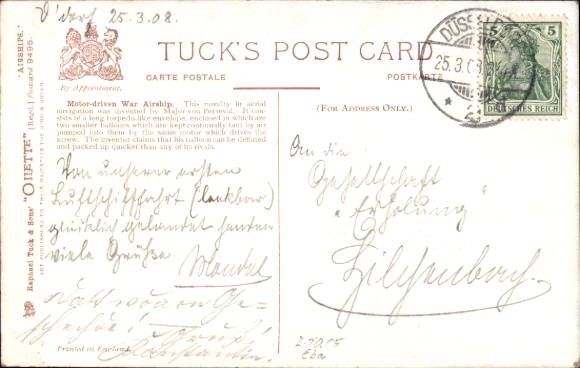 D'dorf 25.3.08.
TUCK'S POST CARD
CARTE POSTALE
POSTKARTE
By Appointment.
(FOR ADDRESS ONLY.)
Motor-driven War Airship. This novelty in aerial
navigation was invented by Major von Perseval. It con-
sists of a long torpedo-like envelope, enclosed in which are
two smaller balloons which are kept continually taut by air
pumped into them by the same motor which drives the
screw. The inventor claims that his balloon can be deflated
and packed up quicker than any of its rivals.
Von unserer ersten
Luftschifffahrt (lenkbar)
glücklich gelandet senden
viele Grüße
Gruß!
Printed in England.
An die
Gesellschaft
"Erholung"
Hilchenbach.
5 5
DEUTSCHES REICH
DÜSSELD
25.3.08
"AIRSHIPS."
Raphael Tuck & Sons' "OILETTE" [Regd.] Postcard 9495.
ART PUBLISHERS TO THEIR MAJESTIES THE KING & QUEEN.